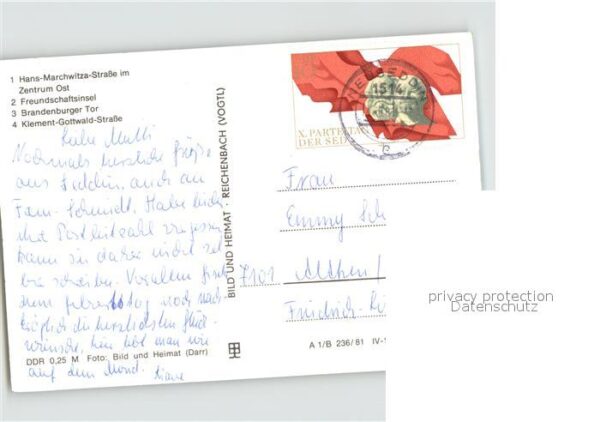 1 Hans-Marchwitza-Straße im
Zentrum Ost
2 Freundschaftsinsel
3 Brandenburger Tor
4 Klement-Gottwald-Straße
Liebe Mutti
Nochmals herzliche Grüße
aus Seddin, auch an
Fam. Schmidt. Habe leider
Postleitzahl vergessen
kann
schreiben. Vor allem
Geburtstag noch nach-
träglich die herzlichsten Glück-
wünsche, hier lebt man wie
auf dem Mond.
DDR 0,25 M Foto: Bild und Heimat (Darr)
BILD UND HEIMAT · REICHENBACH (VOGTL)
X. PARTEITAG
DER SED
SEDDIN
Frau
Emmy Sch
7101
A 1/B 236/81 IV-
privacy protection
Datenschutz